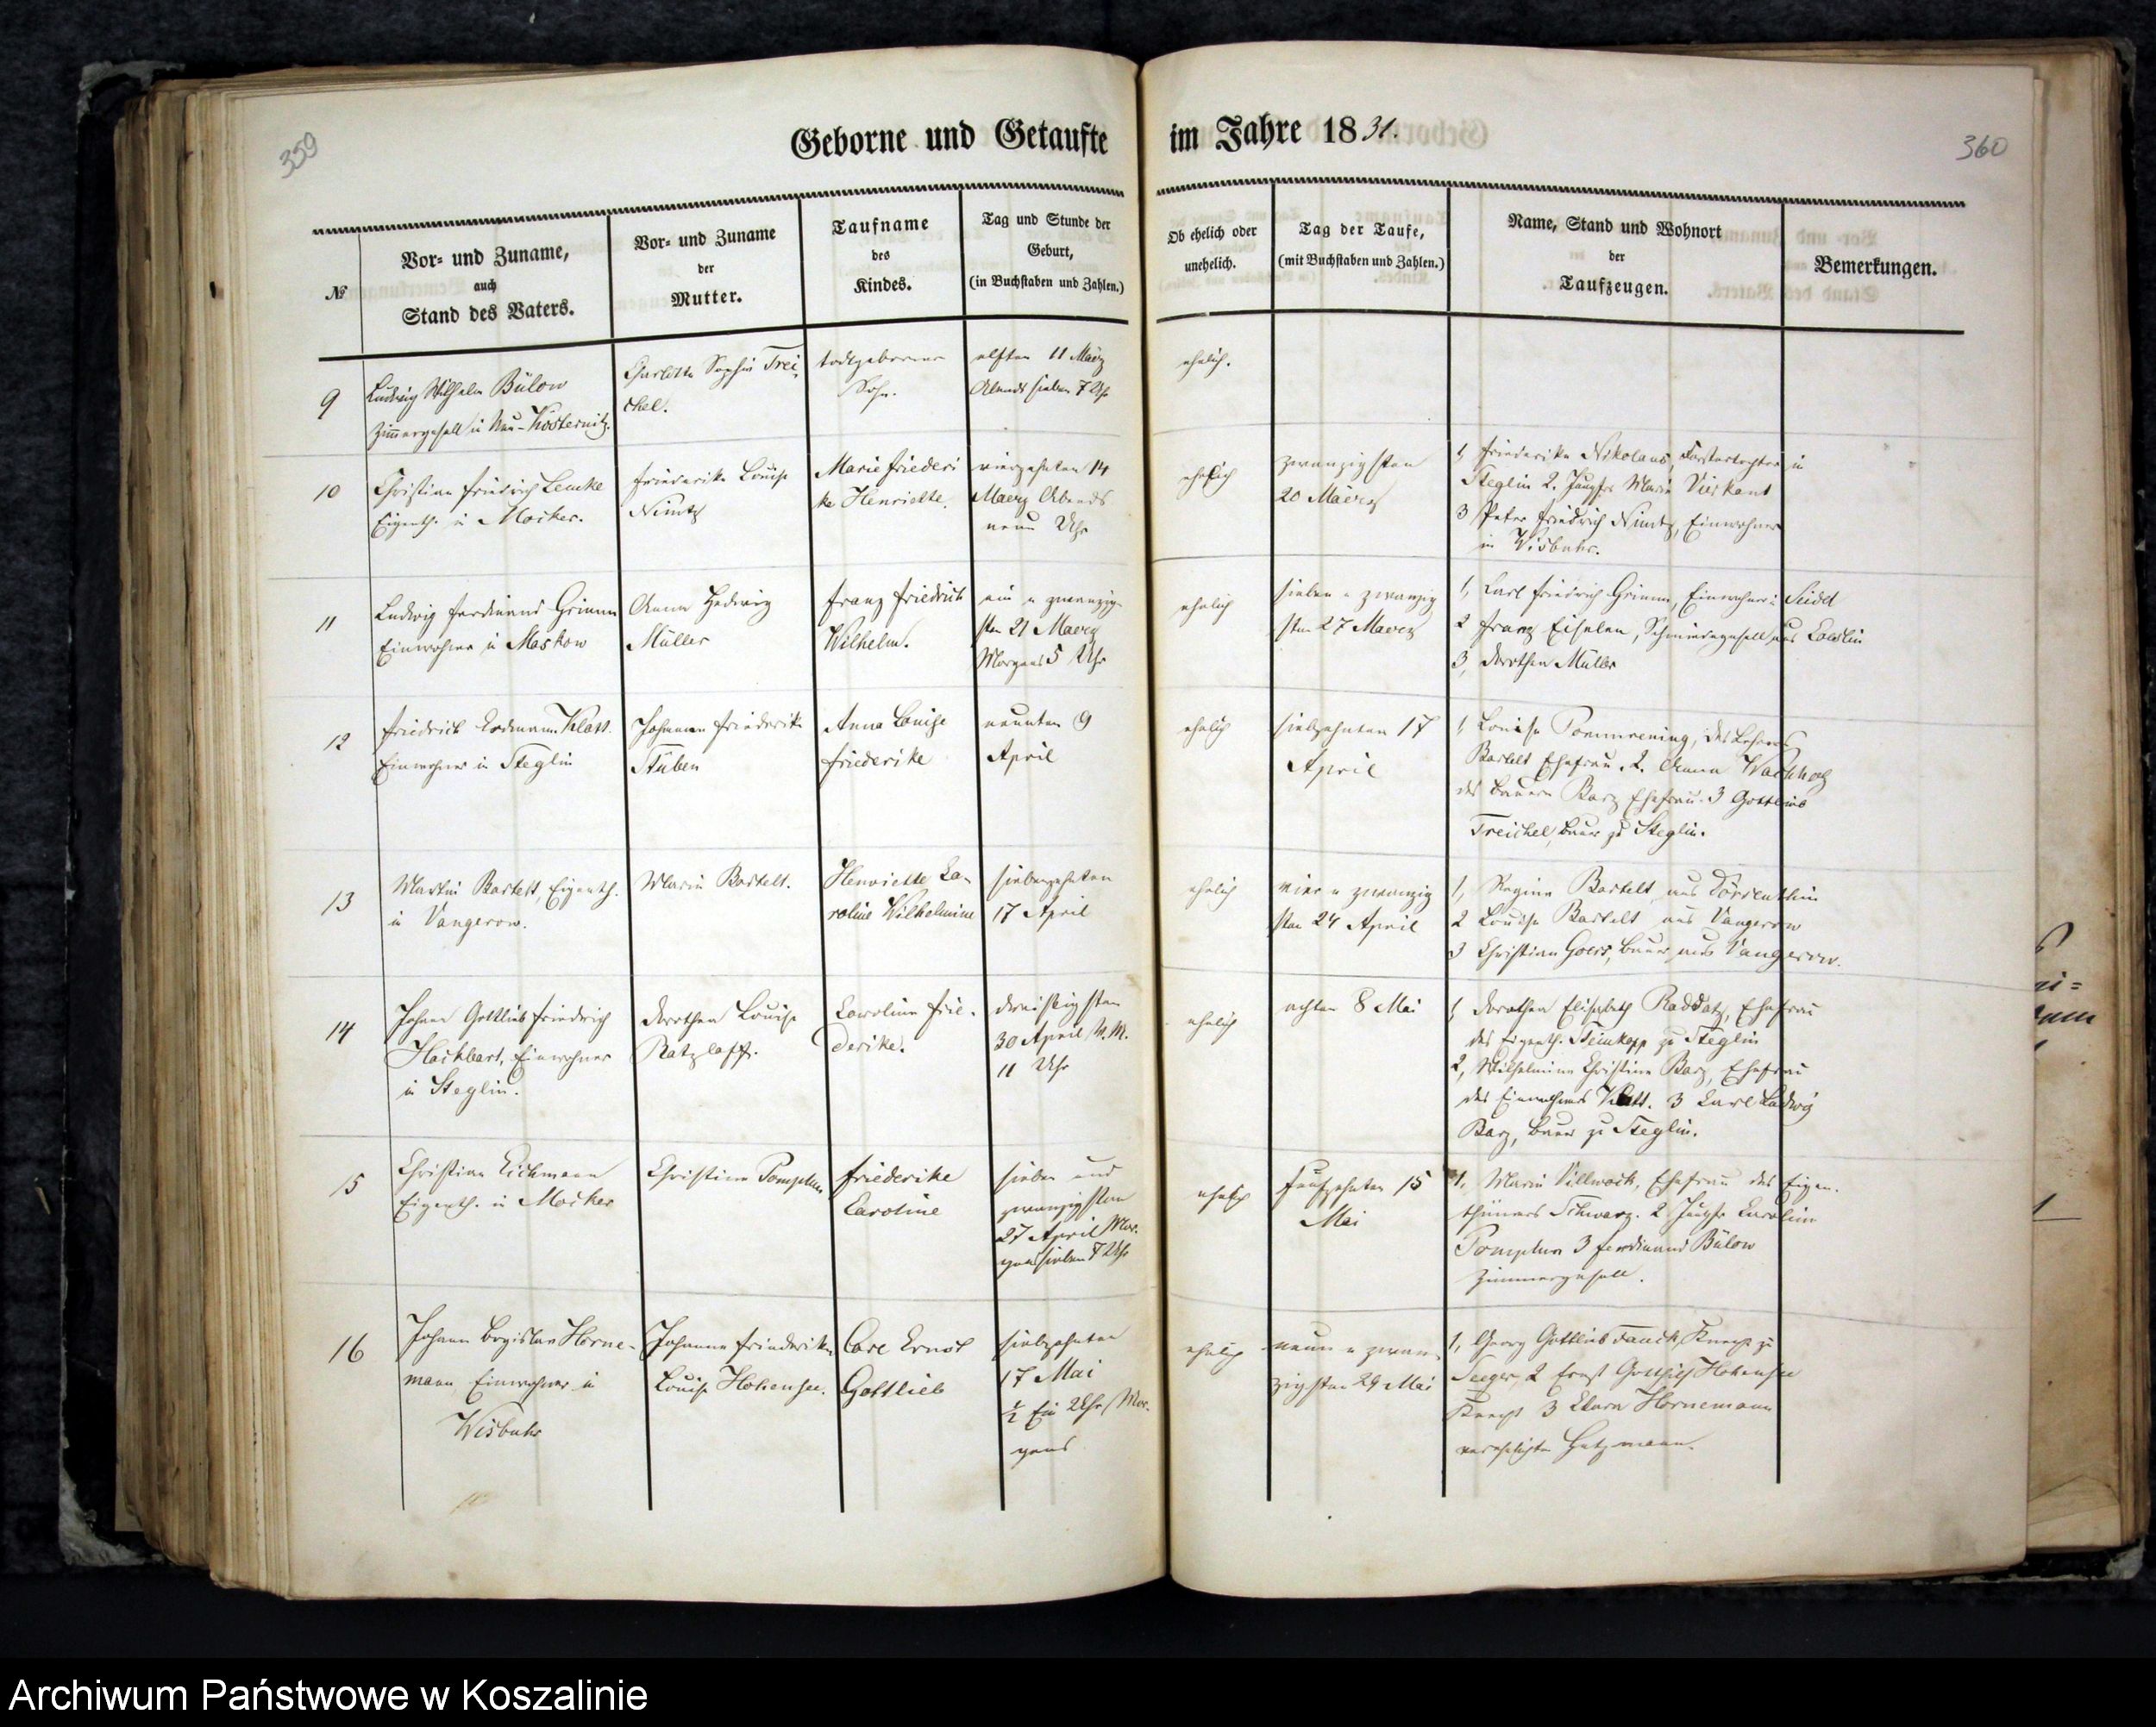 359
Geborne und Getaufte
im Jahre 1831.
360
№
Vor- und Zuname,
auch
Stand des Vaters.
Vor- und Zuname
der
Mutter.
Taufname
des
Kindes.
Tag und Stunde der
Geburt,
(in Buchstaben und Zahlen.)
Ob ehelich oder
unehelich.
Tag der Taufe,
(mit Buchstaben und Zahlen.)
Name, Stand und Wohnort
der
Taufzeugen.
Bemerkungen.
9
Ludwig Wilhelm Bülow
Zimmergesell in Neu-Kösternitz.
Charlotte Sophie Trei
chel.
todtgeborener
Sohn.
elften 11 Maerz
Abends sieben 7 Uhr
ehelich.
10
Christian Friedrich Lemke
Eigenth. in Mocker.
Friederike Louise
Nimtz
Marie Friederi
ke Henriette.
vierzehnten 14
Maerz Abends
neun Uhr
ehelich
zwanzigsten
20 Maerz
1, Friederike Nikolaus, Försterstochter in
Steglin 2. Jungfr Marie Vierkant
3 Peter Friedrich Nimtz, Einwohner
in Wisbuhr.
11
Ludwig Ferdinand Grimm
Einwohner in Maskow
Anna Hedwig
Müller
Franz Friedrich
Wilhelm.
ein u zwanzig-
sten 21 Maerz
Morgens 5 Uhr
ehelich
sieben u zwanzig
sten 27 Maerz
1, Carl Friedrich Grimm, Einwohner in Seidel
2 Franz Eiselen, Schmiedegesell aus Coeslin
3, Dorothea Müller
12
Friedrich Erdmann Klatt.
Einwohner in Steglin
Johanne Friederike
Stüben
Anna Louise
Friederike
neunten 9
April
ehelich
siebzehnten 17
April
1, Louise Pommrening, des Lehrers
Bartelt Ehefrau. 2. Anna Wachholz
des Bauern Barz Ehefrau. 3 Gottlieb
Treichel, Bauer zu Steglin.
13
Martin Bartelt, Eigenth.
in Vangerow.
Marie Bartelt.
Henriette Ca-
roline Wilhelmine
siebenzehnten
17 April
ehelich
vier u zwanzig
sten 24 April
1, Regine Bartelt aus Dörsenthin
2 Louise Bartelt aus Vangerow
3 Christian Goers, Bauer aus Vangerow.
14
Johann Gottlieb Friedrich
Hackbart, Einwohner
in Steglin.
Dorothea Louise
Ratzlaff.
Caroline Frie-
derike.
dreissigsten
30 April V. M.
11 Uhr
ehelich
achten 8 Mai
1, Dorothea Elisabeth Raddatz, Ehefrau
des Eigenth. Steinkopp zu Steglin
2, Wilhelmine Christine Barz, Ehefrau
des Einwohners Klatt. 3 Carl Ludwig
Barz, Bauer zu Steglin.
15
Christian Eichmann
Eigenth. in Mocker
Christine Pomplun
Friederike
Caroline
sieben und
zwanzigsten
27 April Mor-
gens sieben 7 Uhr
ehelich
Fünfzehnten 15
Mai
1, Marie Villwock, Ehefrau des Eigen-
thümers Schwarz. 2 Jungfr Caroline
Pomplun 3 Ferdinand Bülow
Zimmergesell.
16
Johann Bogislav Horne-
mann Einwohner in
Wisbuhr
Johanne Friederike
Louise Hohensee.
Carl Ernst
Gottlieb
siebzehnten
17 Mai
½ Ein Uhr Mor-
gens
ehelich
neun u zwan-
zigsten 29 Mai
1, Georg Gottlieb Knecht zu
Seeger 2 Ernst Gottlieb Hohensee
Knecht 3 Hornemann
verehelichte
Archiwum Państwowe w Koszalinie